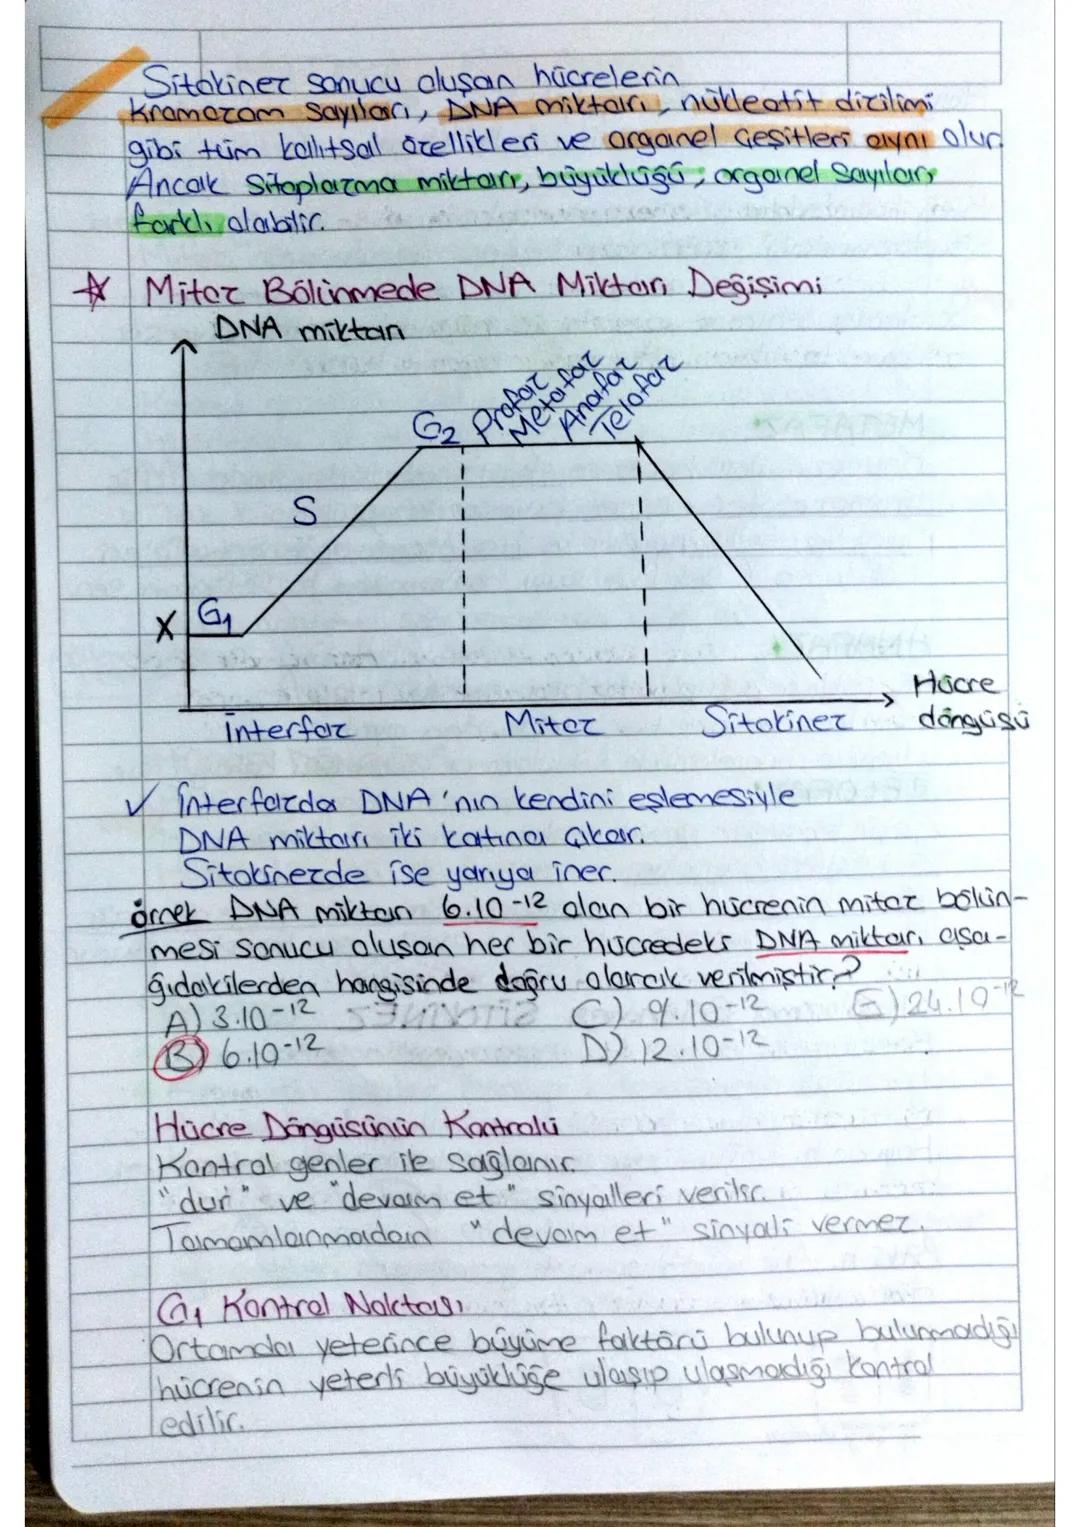 Sitokinez sonucu oluşan hücrelerin
Kromozom sayıları, DNA miktarı, nükleotit dizilimi
gibi tüm kalıtsal özellikleri ve organel çeşitleri aynı olur
Ancak Sitoplazma miktarı, büyüklüğü, organel sayıları
farklı olabilir.
☆ Mitoz Bölünmede DNA Miktarı Değişimi
DNA miktarı
G2 Profaz Metafaz Anafaz Telofaz
S
X G1
Hücre
döngüsü
İnterfaz Mitoz Sitokinez
✓ İnterfazda DNA'nın kendini eşlemesiyle
DNA miktarı iki katına çıkar.
Sitokinezde ise yarıya iner.
örnek DNA miktarı 6.10-12 olan bir hücrenin mitoz bölün-
mesi sonucu oluşan her bir hücredeki DNA miktarı aşa-
ğıdakilerden hangisinde doğru olarak verilmiştir?
A) 3.10-12 C) 9.10-12 E) 24.10-12
B) 6.10-12 D) 12.10-12
Hücre Döngüsünün Kontrolü
Kontrol genler ile sağlanır.
"dur" ve "devam et" sinyalleri verilir.
Tamamlanmadan "devam et" sinyali vermez.
G1 Kontrol Noktası
Ortamda yeterince büyüme faktörü bulunup bulunmadığı
hücrenin yeterli büyüklüğe ulaşıp ulaşmadığı kontrol
edilir.